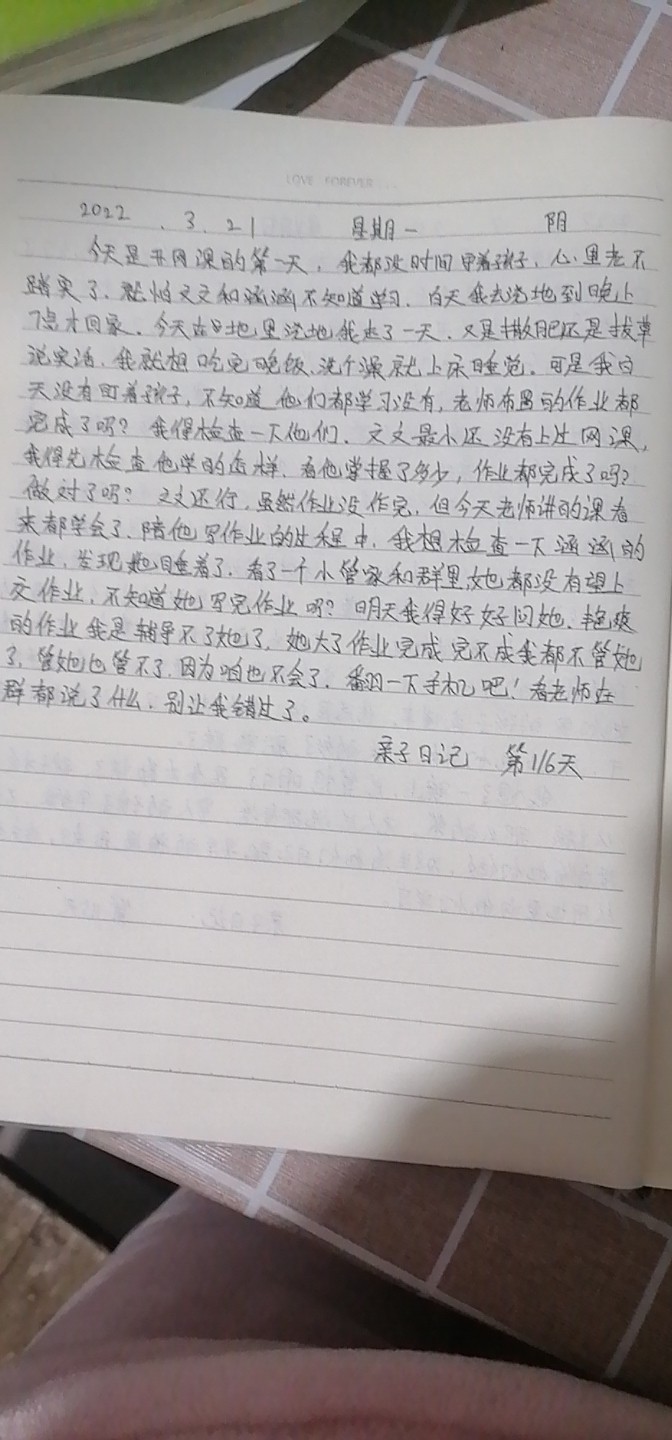 LOVE FOREVER...
2022 . 3 . 21 星期一 阴
今天是开网课的第一天，我都没时间串着孩子，心里老不
踏实了，就怕文文和涵涵不知道学习，白天我去浇地到晚上
7点才回家，今天在地里浇地我走了一天，又是撒肥还是拔草
说实话，我就想吃完晚饭，洗个澡就上床睡觉。可是我白
天没有盯着孩子，不知道他们都学习没有，老师布置的作业都
完成了吗？我得检查一下他们，文文最小还没有上过网课，
我得先检查他学的怎样，看他掌握了多少，作业都完成了吗？
做对了吗？文文还行，虽然作业没作完，但今天老师讲的课看
来都学会了，陪他写作业的过程中，我想检查一下涵涵的
作业，发现她睡着了，看了一个小管家和群里她都没有望上
交作业，不知道她写完作业吗？明天我得好好问她，艳爽
的作业我是辅导不了她了，她大了作业完成完不成我都不管她
了，管她也管不了，因为咱也不会了，翻一下手机吧！看老师在
群都说了什么，别让我错过了。
亲子日记 第116天